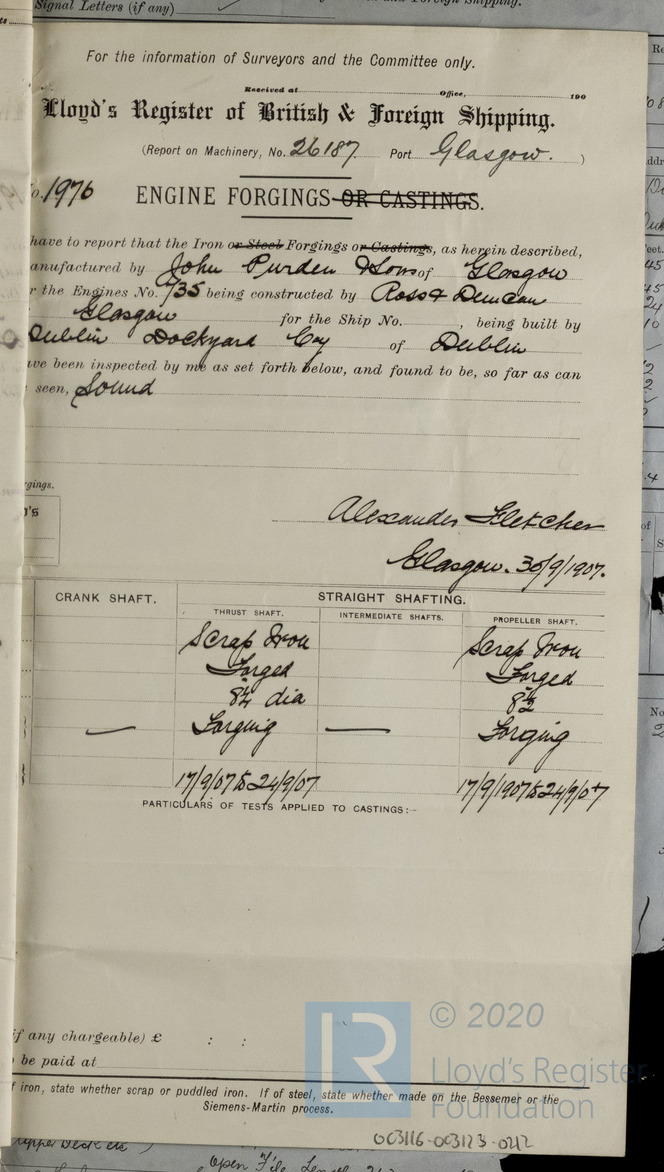 Signal Letters (if any)
Foreign Shipping.
For the information of Surveyors and the Committee only.
Received at Office, 190
Lloyd's Register of British & Foreign Shipping.
(Report on Machinery, No. 26187 Port Glasgow. )
No. 1976 ENGINE FORGINGS OR CASTINGS.
have to report that the Iron or Steel Forgings or Castings, as herein described,
anufactured by John Purden & Sons of Glasgow
r the Engines No. 735 being constructed by Ross & Duncan
Glasgow for the Ship No. , being built by
Dublin Dockyard Coy of Dublin
ave been inspected by me as set forth below, and found to be, so far as can
seen, Sound
rgings.
's
Alexander Fletcher
Glasgow. 30/9/1907.
CRANK SHAFT. STRAIGHT SHAFTING.
THRUST SHAFT. INTERMEDIATE SHAFTS. PROPELLER SHAFT.
Scrap Iron Scrap Iron
Forged Forged
8¼" dia 8½"
— Forging — Forging
17/9/07 to 24/9/07 17/9/1907 to 24/9/07
PARTICULARS OF TESTS APPLIED TO CASTINGS:—
if any chargeable) £ : :
be paid at
f iron, state whether scrap or puddled iron. If of steel, state whether made on the Bessemer or the
Siemens-Martin process.
© 2020
Lloyd's Register
Foundation
003116-003123-0212